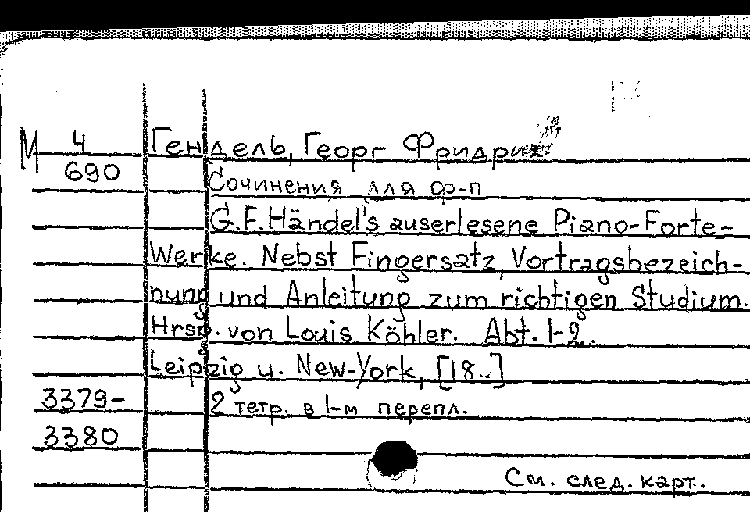 М 4 Гендель, Георг Фридрих
690 Сочинения для ф-п
G.F. Händel's auserlesene Piano-Forte-
Werke. Nebst Fingersatz, Vortragsbezeich-
nung und Anleitung zum richtigen Studium.
Hrsg. von Louis Köhler. Abt. 1-2.
Leipzig u. New-York, [18..]
3379- 2 тетр. в 1-м перепл.
3380
См. след. карт.